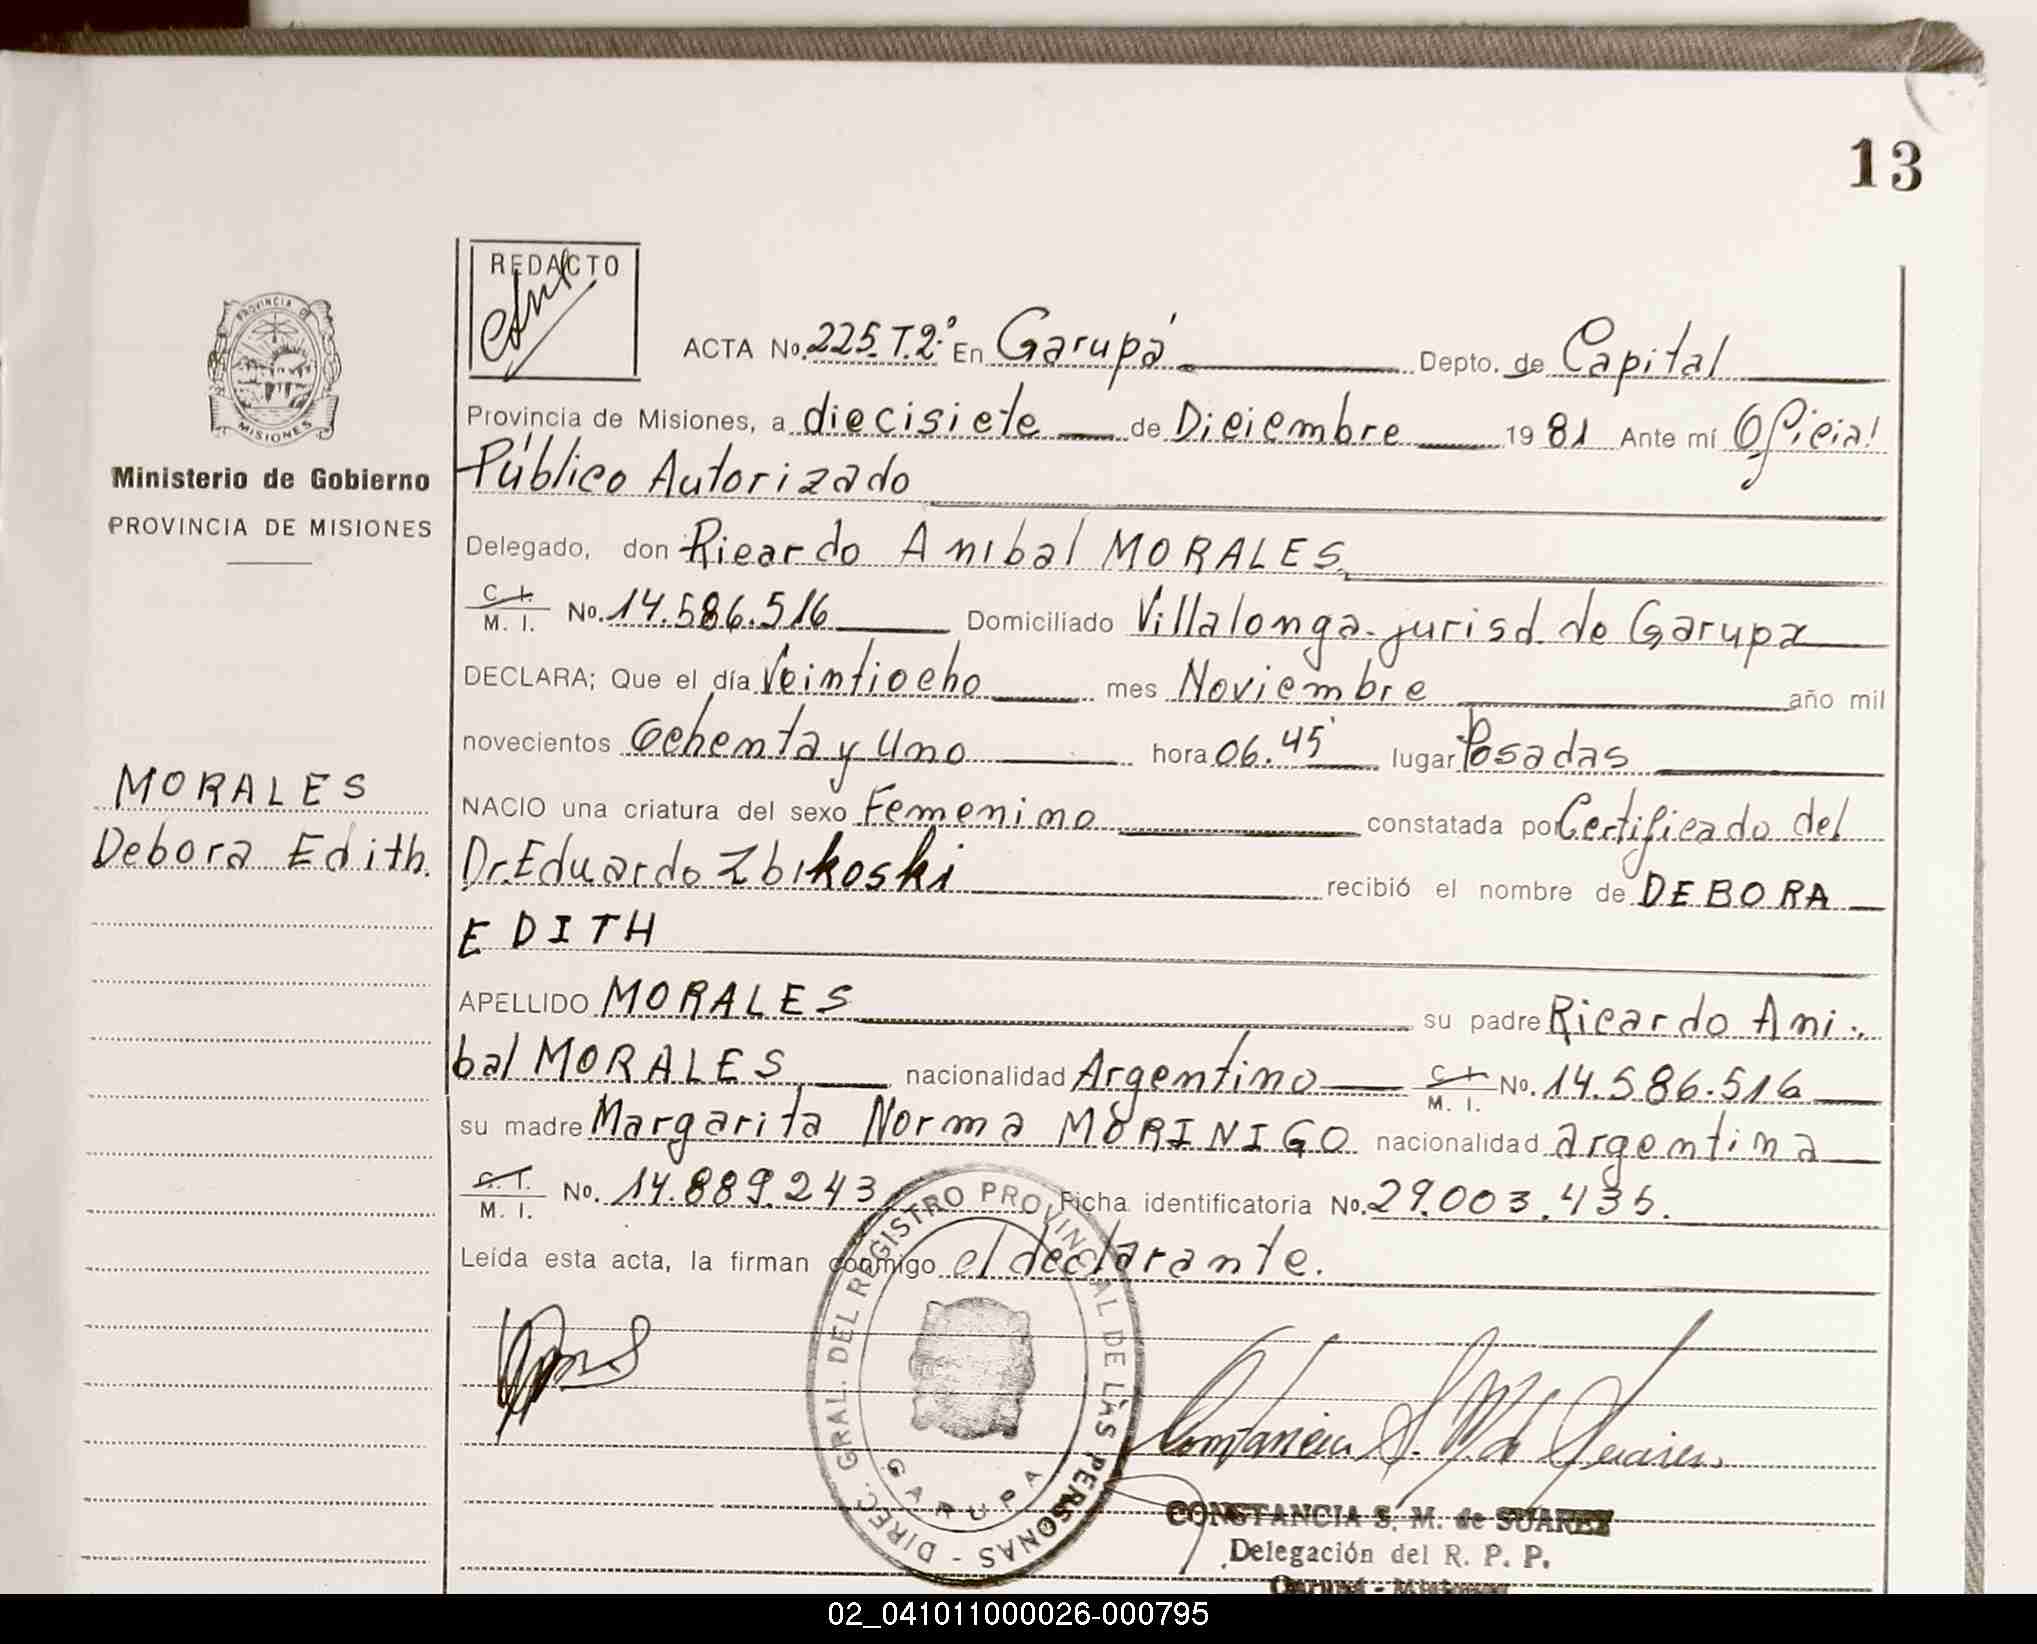 13
REDACTO
ACTA No. 225.T.2º En Garupá Depto. de Capital
Provincia de Misiones, a diecisiete de Diciembre 1981 Ante mí Oficial
Público Autorizado
Delegado, don Ricardo Anibal MORALES
C. I. M. I. No. 14.586.516 Domiciliado Villalonga-jurisd. de Garupa
DECLARA; Que el día Veintiocho mes Noviembre año mil
novecientos Ochenta y Uno hora 06.45' lugar Posadas
NACIO una criatura del sexo Femenino constatada por Certificado del
Dr. Eduardo Zbikoski recibió el nombre de DEBORA
EDITH
APELLIDO MORALES su padre Ricardo Ani-
bal MORALES nacionalidad Argentino C. I. M. I. No. 14.586.516
su madre Margarita Norma MORINIGO nacionalidad argentina
C. I. M. I. No. 14.889.243 Ficha identificatoria No. 29.003.435.
Leída esta acta, la firman conmigo el declarante.
PROVINCIA DE
MISIONES
Ministerio de Gobierno
PROVINCIA DE MISIONES
MORALES
Debora Edith.
DIREC. GRAL. DEL REGISTRO PROVINCIAL DE LAS PERSONAS -
GARUPA
Constancia S. M. de Suarez
CONSTANCIA S. M. de SUAREZ
Delegación del R. P. P.
Garupá - Misiones
02_041011000026-000795